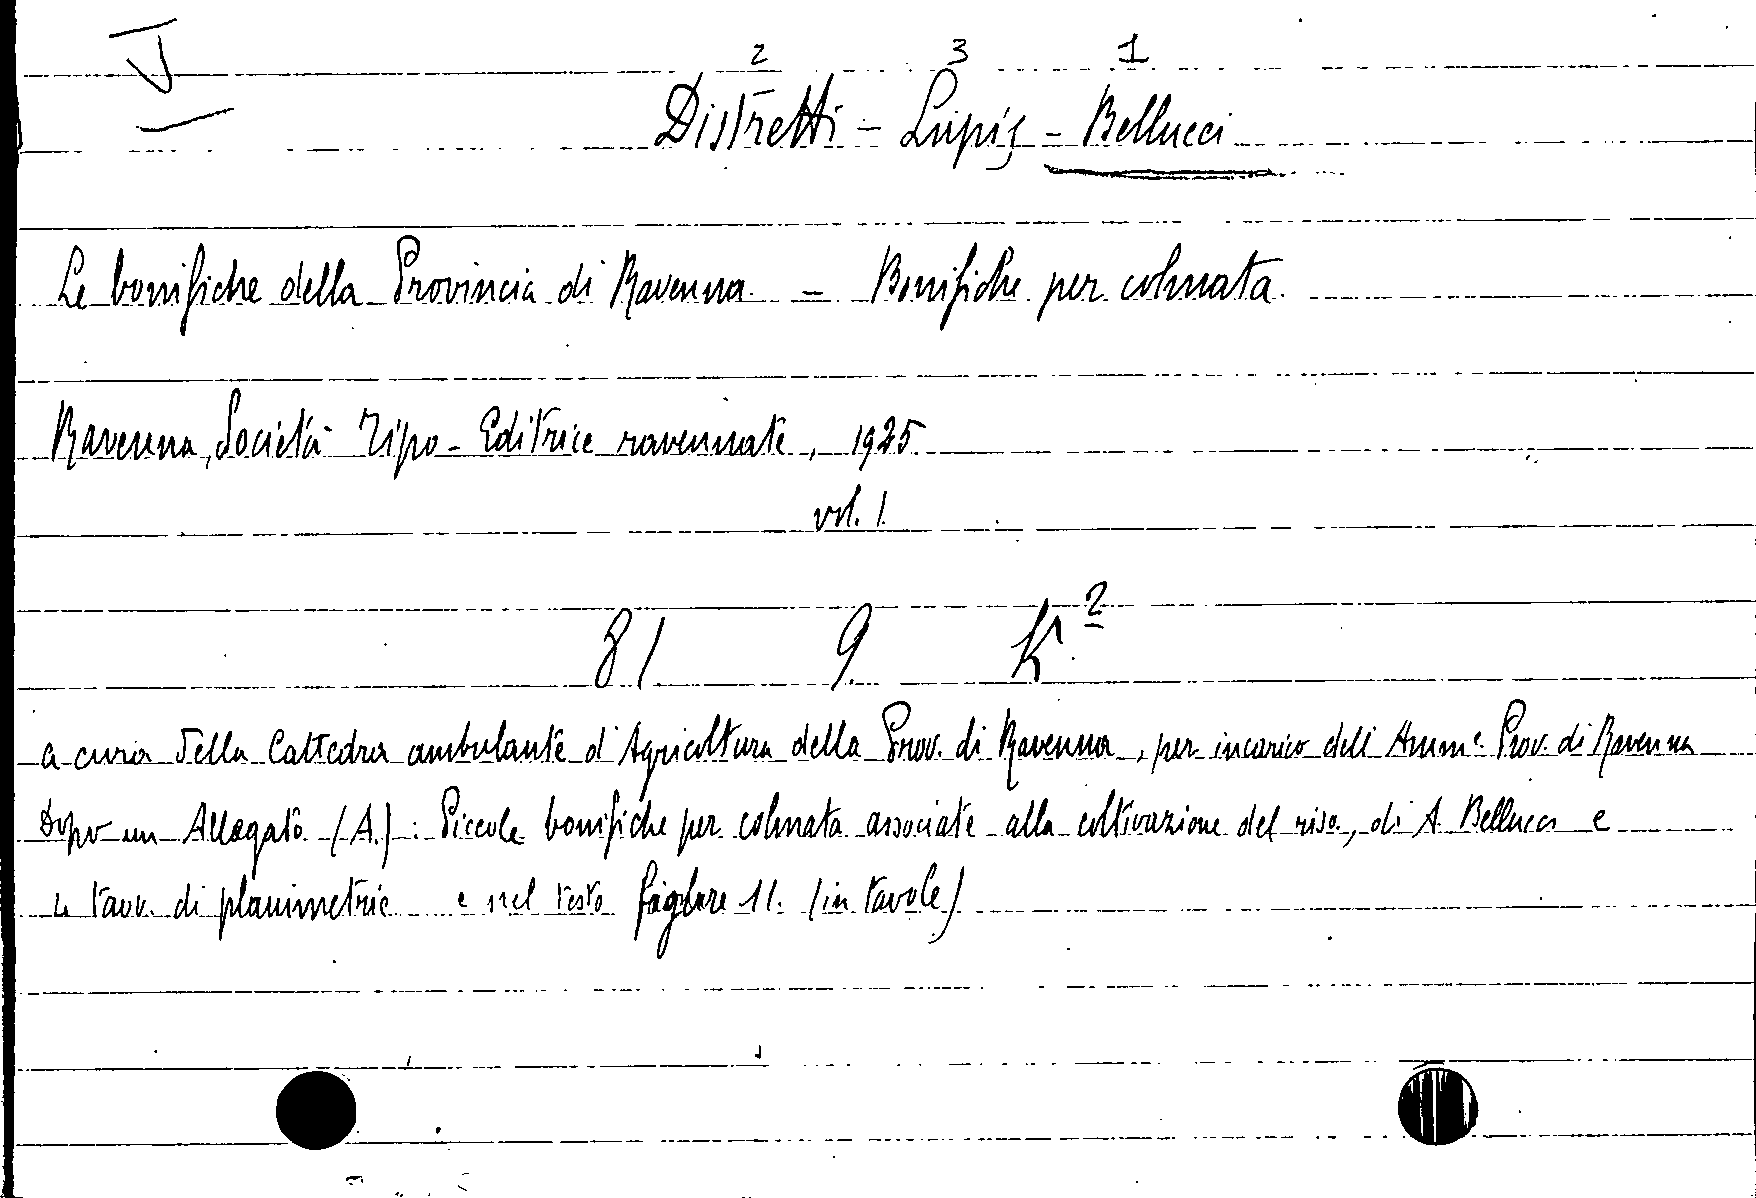 J
2 3 1
Distretti - Lupis - Bellucci
Le bonifiche della Provincia di Ravenna - Bonifiche per colmata.
Ravenna, Società Tipo-Editrice ravennate, 1925.
vol. 1.
81 9. K²
a cura della Cattedra ambulante d'Agricoltura della Prov. di Ravenna, per incarico dell'Amm.e Prov. di Ravenna
Dopo un Allegato (A.): Piccole bonifiche per colmata associate alla coltivazione del riso, di A. Bellucci e
4 tavv. di planimetrie e nel testo figure 11. (in tavole)